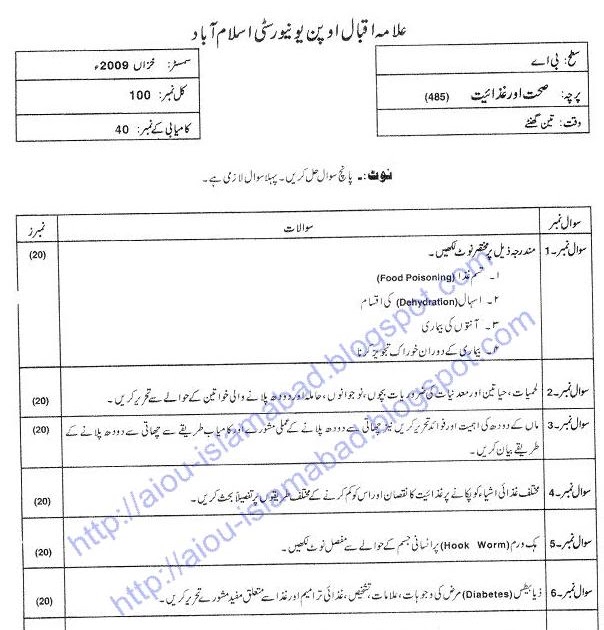 علامہ اقبال اوپن یونیورسٹی اسلام آباد
سطح: بی اے
پرچہ: صحت اور غذائیت (485)
وقت: تین گھنٹے
سمسٹر: خزاں 2009ء
کل نمبر: 100
کامیابی کے نمبر: 40
نوٹ:۔ پانچ سوال حل کریں۔ پہلا سوال لازمی ہے۔
سوال نمبر سوالات نمبرز
سوال نمبر۔1 مندرجہ ذیل پر مختصر نوٹ لکھیں۔ (20)
۱۔ سم غذا (Food Poisoning)
۲۔ اسہال (Dehydration) کی اقسام
۳۔ آنتوں کی بیماری
۴۔ بیماری کے دوران خوراک تجویز کرنا
سوال نمبر۔2 لحمیات، حیاتین اور معدنیات کی ضروریات بچوں، نوجوانوں، حاملہ اور دودھ پلانے والی خواتین کے حوالے سے تحریر کریں۔ (20)
سوال نمبر۔3 ماں کے دودھ کی اہمیت اور فوائد تحریر کریں نیز چھاتی سے دودھ پلانے کے عملی مشورے اور کامیاب طریقے سے چھاتی سے دودھ پلانے کے (20)
طریقے بیان کریں۔
سوال نمبر۔4 مختلف غذائی اشیاء کو پکانے پر غذائیت کا نقصان اور اس کو کم کرنے کے مختلف طریقوں پر تفصیلاً بحث کریں۔ (20)
سوال نمبر۔5 ہک ورم (Hook Worm) پر انسانی جسم کے حوالے سے مفصل نوٹ لکھیں۔ (20)
سوال نمبر۔6 ذیابیطس (Diabetes) مرض کی وجوہات، علامات، تشخیص، غذائی ترامیم اور غذا سے متعلق مفید مشورے تحریر کریں۔ (20)
http://aiou-islamabad.blogspot.com
http://aiou-islamabad.blogspot.com